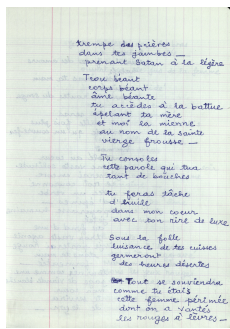 trempe des prières
dans tes jambes —
prenant Satan à la légère
Trou béant
corps béant
âme béante
tu accèdes à la battue
épelant ta mère
et moi la mienne
au nom de la sainte
vierge frousse —
Tu consoles
cette parole qui tua
tant de bouches
tu feras tâche
d'huile
dans mon coeur
avec ton rire de luxe
Sous la folle
luisance de tes cuisses
germeront
des heures désertes
Tout se souviendra
comme tu étais
cette femme périmée
dont on a vanté
les rouges à lèvres —